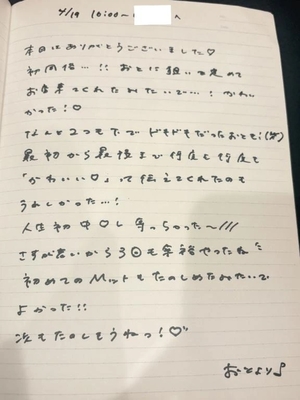 4/19 10:00〜 へ
本日はありがとうございました♡
初同伴…!! おとに狙い定めて
お店来てくれたみたいで…! かわい
かった!♡
なんと2つも下でドキドキだったおとも!(笑)
最初から最後まで何度も何度も
「かわいい♡」って伝えてくれたのも
うれしかった…!
人生初中〇し奪っちゃった〜///
さすが若いから3回も余裕やったね
初めてのMットもたのしめたみたいで
よかった!!
次もたのしもうねっ!♡
おとより